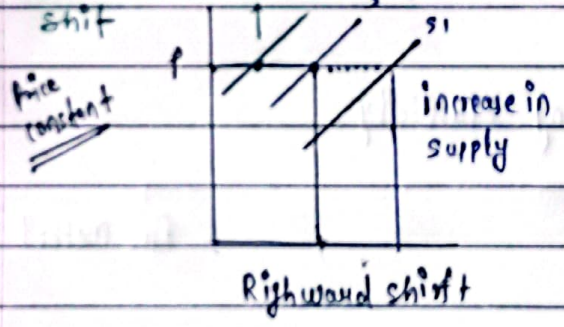 shif
S1
P
Price
constant
increase in
supply
Righward shift